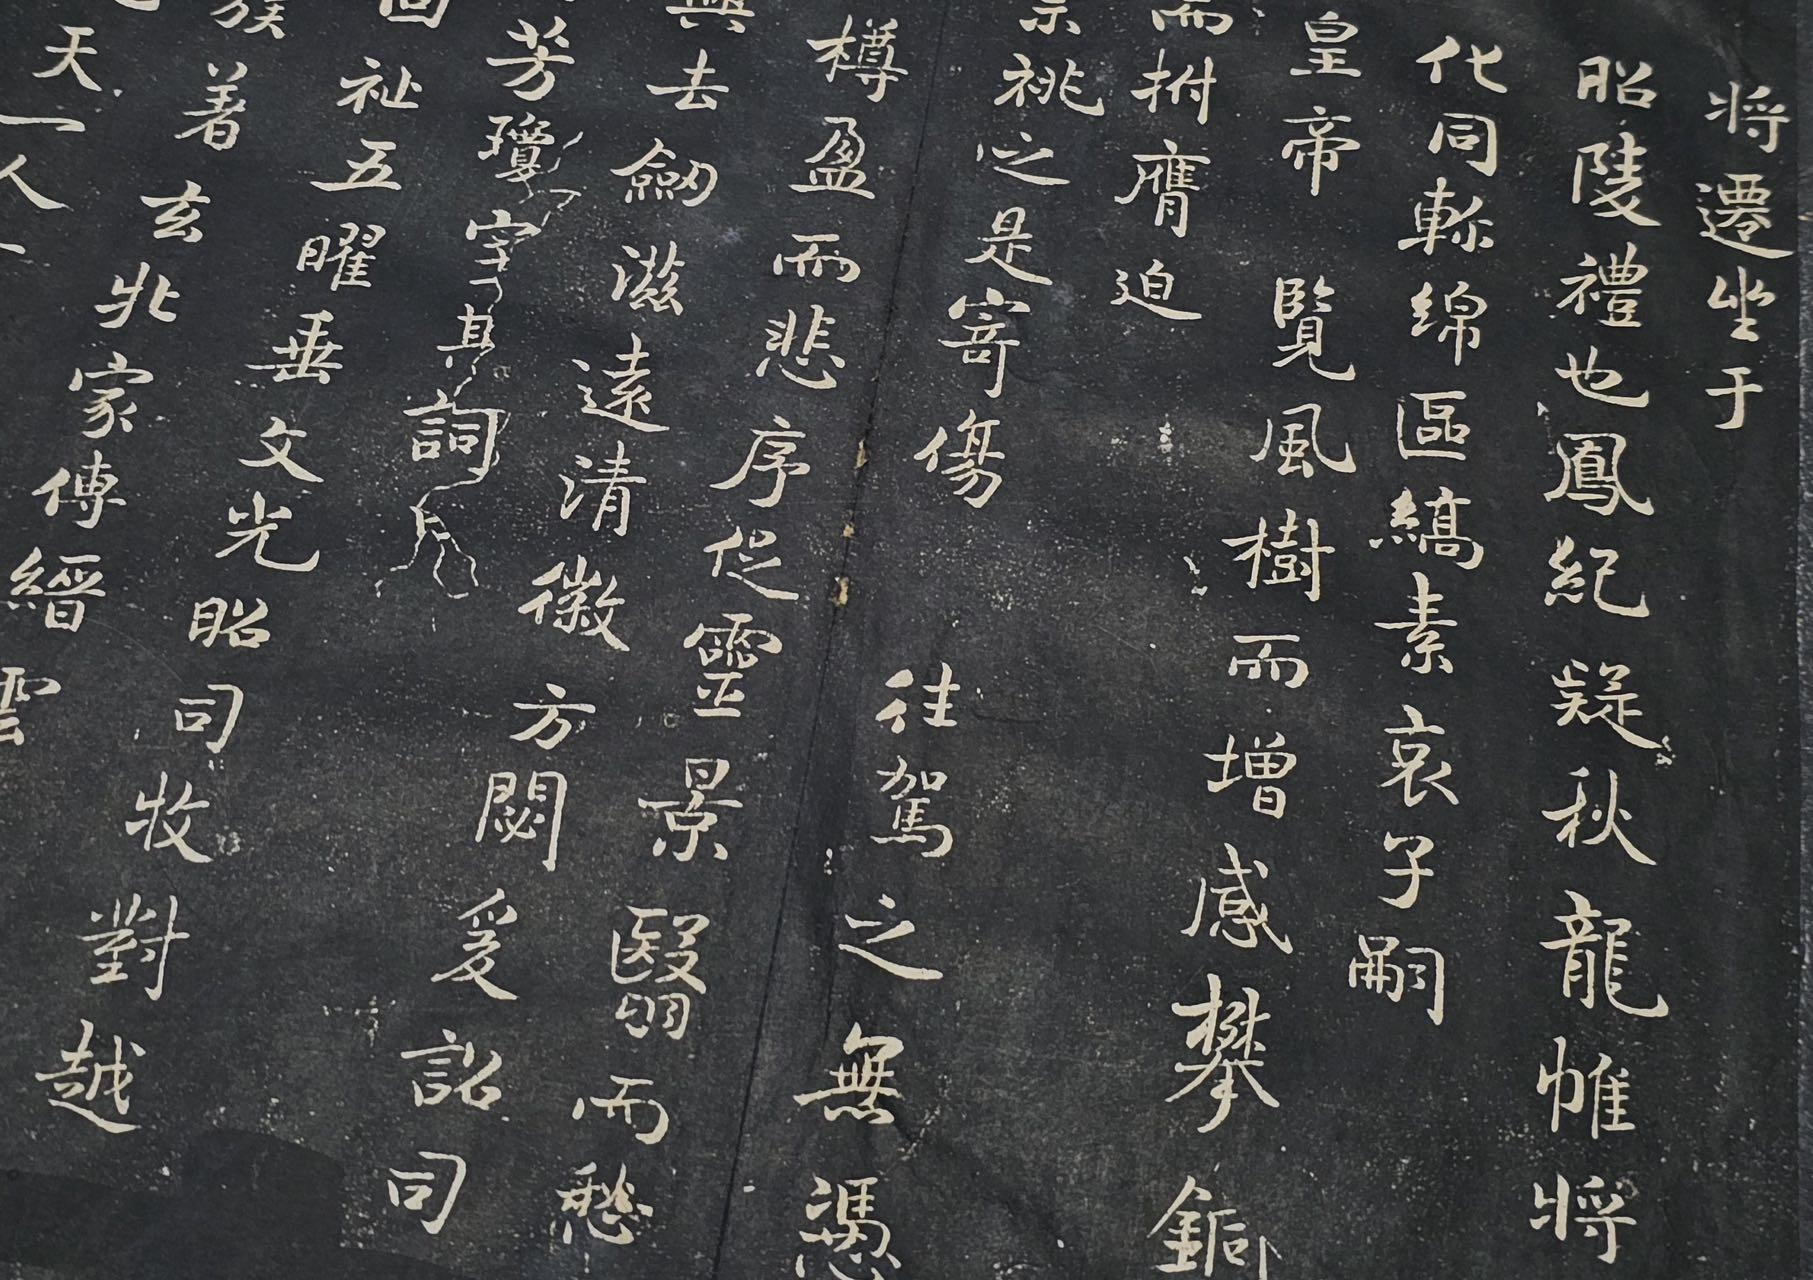 将遷坐于
昭陵禮也鳳紀疑秋龍帷将
化同軫綿區縞素哀子嗣
皇帝覽風樹而增感攀銅
而拊膺迫
宗祧之是寄傷往駕之無憑
樽盈而悲序促靈景翳而愁
興去劒滋遠清徽方閟爰詔司
芳瓊字其詞曰
祉五曜垂文光昭司牧對越
族著玄丘家傳縉雲
天一人